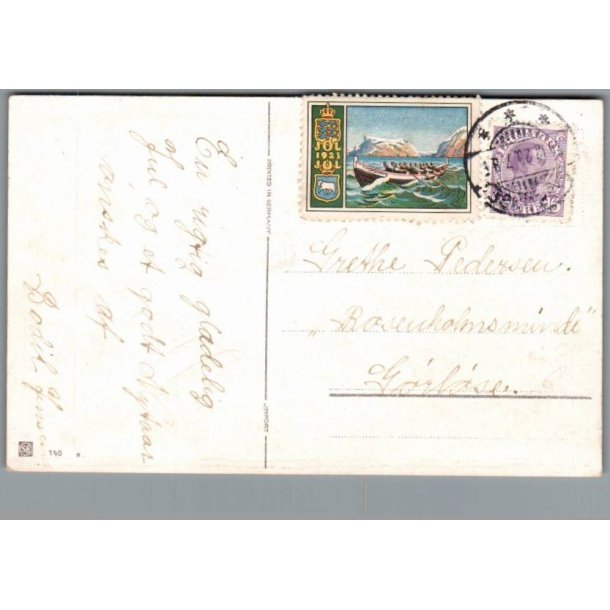 d
En rigtig glædelig
jul og et godt Nytaar
ønskes af
Bodil Jensen
PRINTED IN GERMANY
IMPORT
740
JÓL
1923
JÓL
15
Grethe Pedersen.
„Rosenholmsminde"
Gørløse.